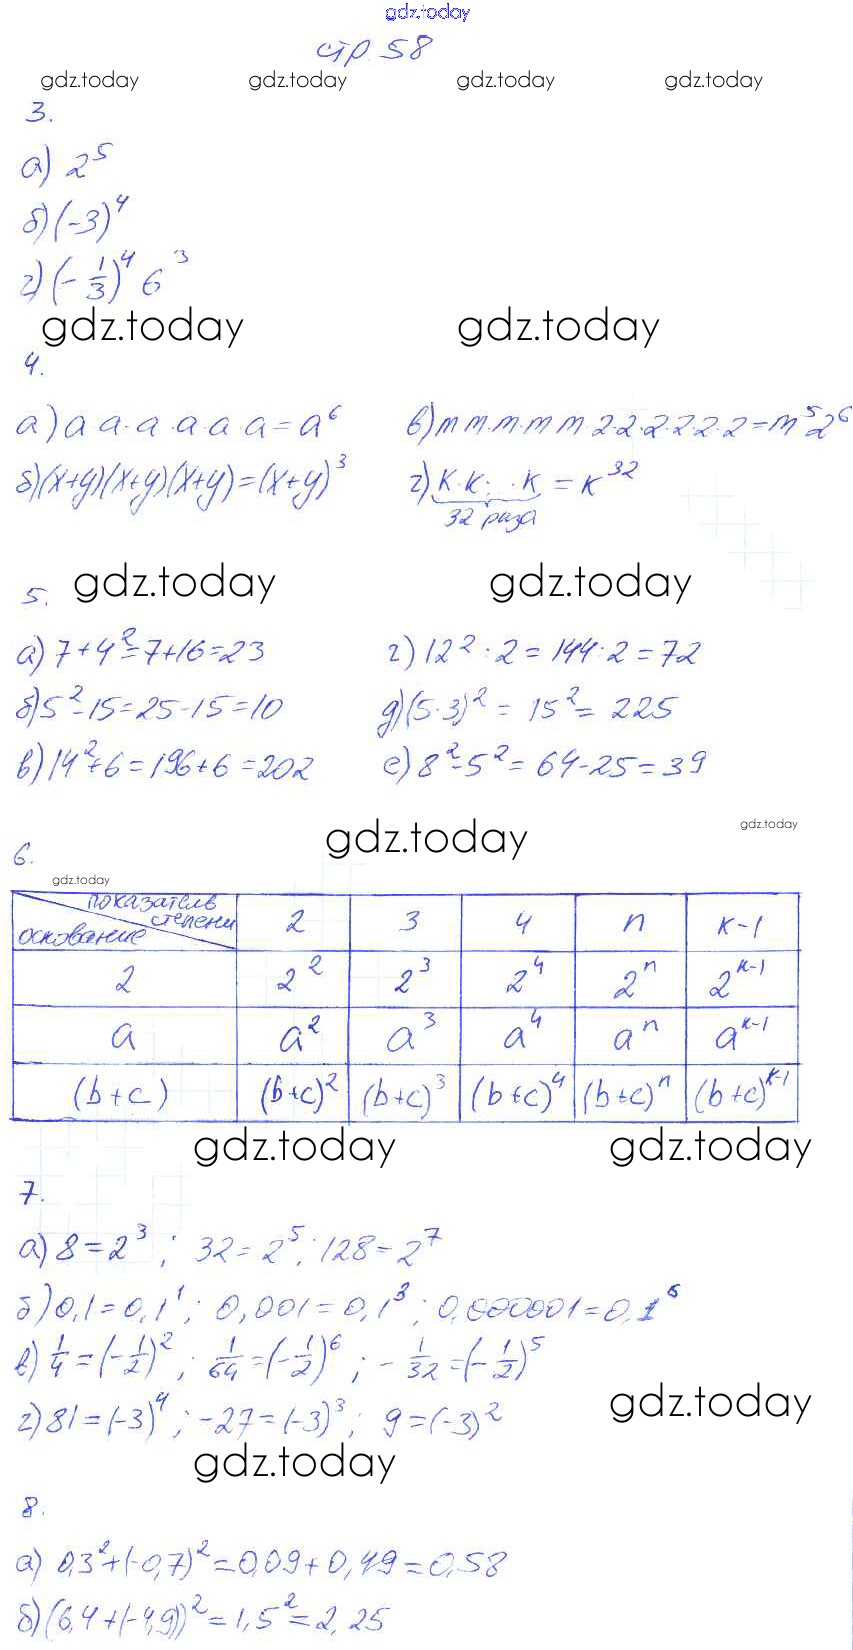 gdz.today
стр. 58
gdz.today gdz.today gdz.today gdz.today
3.
а) 2⁵
б) (-3)⁴
г) (-1/3)⁴ 6³
gdz.today gdz.today
4.
а) a a·a·a·a·a = a⁶ в) m m·m·m m 2·2·2·2 2·2 = m⁵2⁶
б) (x+y)(x+y)(x+y) = (x+y)³ г) k·k· ·k = k³²
32 раза
gdz.today gdz.today
5.
а) 7+4²=7+16=23 г) 12²:2=144:2=72
б) 5²-15=25-15=10 д) (5·3)²=15²=225
в) 14²+6=196+6=202 е) 8²-5²=64-25=39
gdz.today gdz.today
6.
gdz.today
показатель степени 2 3 4 n k-1
основание
2 2² 2³ 2⁴ 2ⁿ 2ᵏ⁻¹
a a² a³ a⁴ aⁿ aᵏ⁻¹
(b+c) (b+c)² (b+c)³ (b+c)⁴ (b+c)ⁿ (b+c)ᵏ⁻¹
gdz.today gdz.today
7.
а) 8=2³; 32=2⁵; 128=2⁷
б) 0,1=0,1¹; 0,001=0,1³; 0,000001=0,1⁶
в) 1/4=(-1/2)²; 1/64=(-1/2)⁶; -1/32=(-1/2)⁵
г) 81=(-3)⁴; -27=(-3)³; 9=(-3)²
gdz.today
gdz.today
8.
а) 0,3²+(-0,7)²=0,09+0,49=0,58
б) (6,4+(-4,9))²=1,5²=2,25